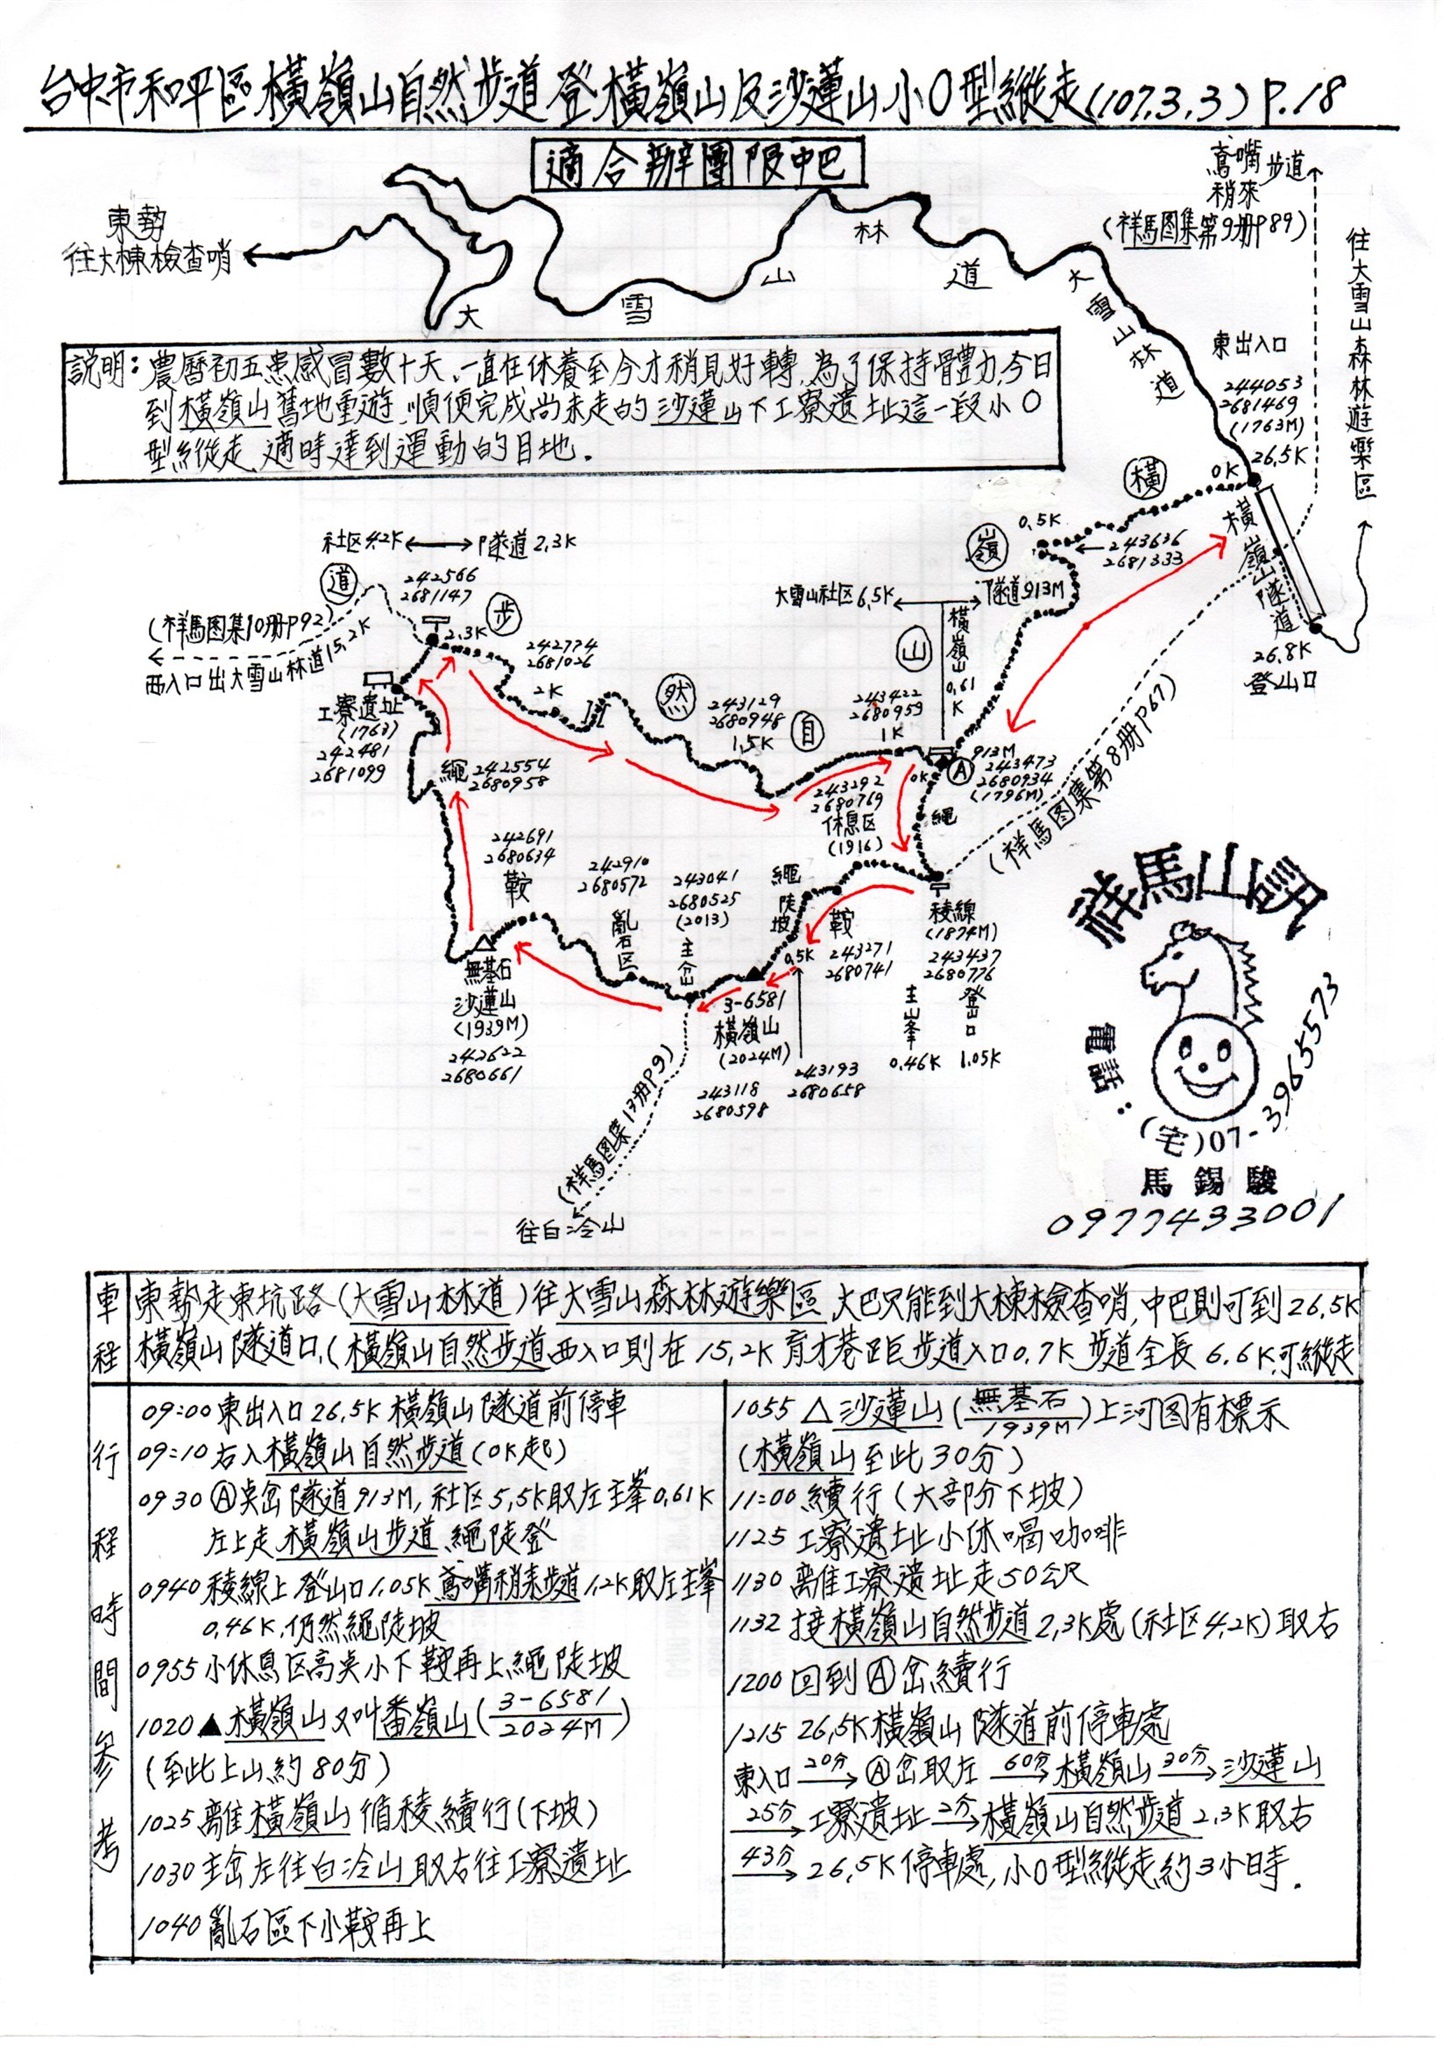 台中市和平區橫嶺山自然步道登橫嶺山及沙蓮山小O型縱走(107.3.3) P.18
適合辦團限中巴
鳶嘴
稍來
步道
(祥馬图集第9册P89)
東勢
往大棟檢查哨
大雪山林道
大雪山林道
往大雪山森林遊樂區
東出入口
244053
2681469
(1763M)
26.5K
0K
說明:農曆初五患感冒數十天,一直在休養至今才稍見好轉,為了保持體力,今日
到橫嶺山舊地重遊,順便完成尚未走的沙蓮山下工寮遺址這一段小O
型縱走,適時達到運動的目地.
橫
嶺
山
自
然
步
道
0.5K
243636
2681333
橫嶺山隧道
26.8K
登山口
社区4.2K
隧道2.3K
242566
2681147
2.3K
(祥馬图集10册P92)
西入口出大雪山林道15.2K
大雪山社区6.5K
隧道913M
橫嶺山0.61K
工寮遺址
(1763)
242481
2681099
242774
2681026
2K
243129
2680948
1.5K
243422
2680959
1K
913M
Ⓐ
243473
2680934
(1796M)
0K
繩
繩
242554
2680958
243292
2680769
休息区
(1916)
(祥馬图集第8册P67)
242691
2680634
鞍
242910
2680572
亂石区
243041
2680525
(2013)
主岔
繩陡坡
鞍
243271
2680741
0.5K
稜線
(1874M)
243437
2680776
主山峯
0.46K
登山口
1.05K
無基石
沙蓮山
(1939M)
242622
2680661
3-6581
橫嶺山
(2024M)
243118
2680598
243193
2680658
(祥馬图集13册P9)
往白冷山
祥馬山訊
電話:
(宅)07-3965573
馬錫駿
0977433001
車程
東勢走東坑路(大雪山林道)往大雪山森林遊樂區,大巴只能到大棟檢查哨,中巴則可到26.5K
橫嶺山隧道口,(橫嶺山自然步道西入口則在15.2K育才巷距步道入口0.7K步道全長6.6K,可縱走
行程時間參考
09:00 東出入口26.5K橫嶺山隧道前停車
09:10 右入橫嶺山自然步道(0K起)
0930 Ⓐ吳岔隧道913M,社区5.5K取左主峯0.61K
左上走橫嶺山步道,繩陡登
0940 稜線上登山口1.05K鳶嘴稍來步道1.2K取左主峯
0.46K,仍然繩陡坡
0955 小休息区高吳小下鞍再上繩陡坡
1020 ▲橫嶺山又叫番嶺山(3-6581/2024M)
(至此上山約80分)
1025 離橫嶺山循稜續行(下坡)
1030 主岔左往白冷山取右往工寮遺址
1040 亂石區下小鞍再上
1055 △沙蓮山(無基石/1939M)上河图有標示
(橫嶺山至此30分)
11:00 續行(大部分下坡)
1125 工寮遺址小休喝咖啡
1130 離工寮遺址走50公尺
1132 接橫嶺山自然步道2.3K處(社区4.2K)取右
1200 回到Ⓐ岔續行
1215 26.5K橫嶺山隧道前停車處
東入口 20分→ Ⓐ岔取左 60分→ 橫嶺山 30分→ 沙蓮山
25分→ 工寮遺址 2分→ 橫嶺山自然步道2.3K取右
43分→ 26.5K停車處,小O型縱走約3小時.